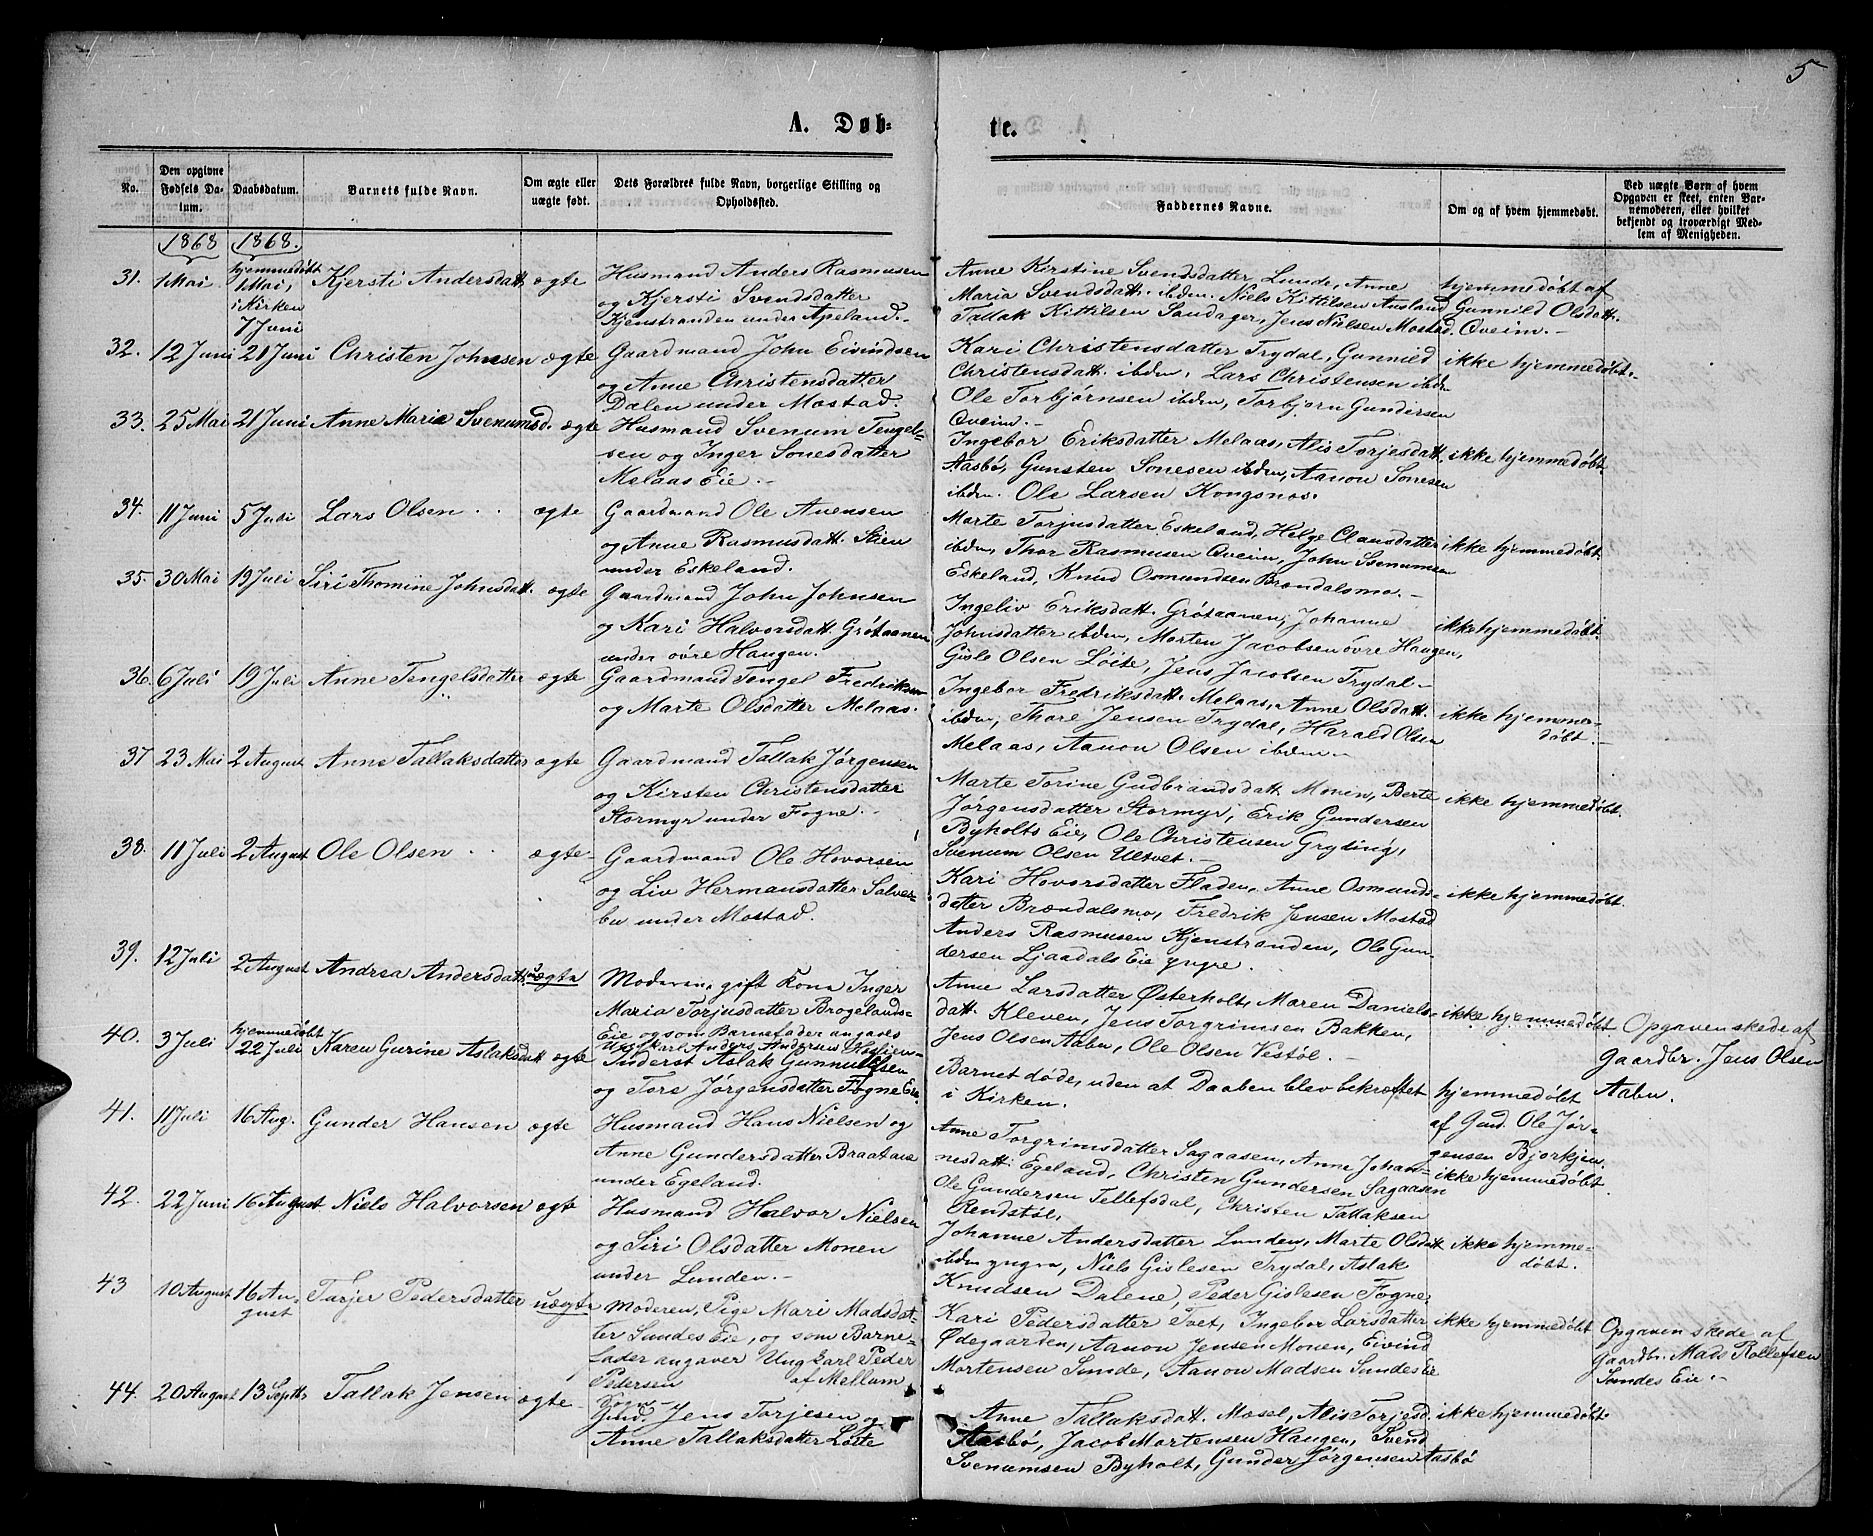 5
A. Døb-
te.
No.
Den opgivne
Fødsels Da-
tum.
Daabsdatum.
Barnets fulde Navn.
Om ægte eller
uægte født.
Dets Forældres fulde Navn, borgerlige Stilling og
Opholdssted.
Faddernes Navne.
Om og af hvem hjemmedøbt.
Ved uægte Børn af hvem
Opgaven er skeet, enten Bar-
nemoderen, eller hvilket
bekjendt og troværdigt Med-
lem af Menigheden.
1868 1868.
31. 1 Mai
hjemmedøbt
1 Mai,
i Kirken
7 Juni
Kjersti Andersdatt ægte
Husmand Anders Rasmusen
og Kjersti Svendsdatter
Kjenstranden under Apeland.
Anne Kirstine Svendsdatter Lunde, Anne
Maria Svendsdatt. ibdm. Niels Kittilsen Ausland
Tallak Kittilsen Sandager, Jens Nielsen Mostad.
hjemmedøbt af
Gunnild Olsdatt.
Qveim.
32. 12 Juni 21 Juni Christen Johnsen ægte
Gaardmand John Eivindsen
og Anne Christensdatter
Dalen under Mostad.
Kari Christensdatter Trydal, Gunnild
Christensdatt. ibdm, Lars Christensen ibdm
Ole Torbjørnsen ibdm, Torbjørn Gundersen
Qveim.
ikke hjemmedøbt.
33. 25 Mai 21 Juni Anne Maria Svenumsd. ægte
Husmand Svenum Tengels-
sen og Inger Sonesdatter
Melaas Eie.
Ingebor Eriksdatter Melaas, Alis Torjesdatt.
Aasbø, Gunsten Sonesen ibdm, Aanon Sonesen
ibdm. Ole Larsen Kongsnos.
ikke hjemmedøbt.
34. 11 Juni 5 Juli Lars Olsen ægte
Gaardmand Ole Avensen
og Anne Rasmusdatt. Stien
under Eskeland.
Marte Torjusdatter Eskeland, Helge Clausdatter
ibdm, Thor Rasmusen Qveim, John Svenumsen
Eskeland, Knud Osmundsen Brændalsmo.
ikke hjemmedøbt.
35. 30 Mai 19 Juli Siri Thomine Johnsdatt. ægte
Gaardmand John Johnsen
og Kari Halvorsdatt. Grótaanen
under óvre Haugen.
Ingeliv Eriksdatt. Grótaanen, Johanne
Johnsdatter ibdm, Morten Jacobsen óvre Haugen,
Gisle Olsen Lóite, Jens Jacobsen Trydal
ikke hjemmedøbt.
36. 6 Juli 19 Juli Anne Tengelsdatter ægte
Gaardmand Tengel Fredriksen
og Marte Olsdatter Melaas.
Ingebor Fredriksdatt. Melaas, Anne Olsdatt.
ibdm, Thore Jensen Trydal, Harald Olsen
Melaas, Aanon Olsen ibdm
ikke hjemme-
døbt.
37 23 Mai 2 August Anne Tallaksdatter ægte
Gaardmand Tallak Jørgensen
og Kirsten Christensdatter
Stormyr under Fogne.
Marte Torine Gudbrandsdatt Monen, Berte
Jørgensdatter Stormyr, Erik Gundersen
Byholts Eie, Ole Christensen Gryting,
Svenum Olsen Ultvet.
ikke hjemmedøbt.
38. 11 Juli 2 August Ole Olsen ægte
Gaardmand Ole Hovorsen
og Liv Hermansdatter Salver-
bu under Mostad.
Kari Hovorsdatter Fladen, Anne Osmunds-
datter Brændalsmo, Fredrik Jensen Mostad
Anders Rasmusen Kjenstranden, Ole Gun-
dersen Ljaadals Eie yngre.
ikke hjemmedøbt.
39. 12 Juli 2 August Andrea Andersdatt. uægte
Moderen, gift Kone Inger
Maria Torjusdatter Brogelands-
Eie og som Barnefader angaves
Ungkarl Anders Andersen
Anne Larsdatter Østerholt, Maren Daniels-
datt. Kleven, Jens Torgrimsen Bakken,
Jens Olsen Aabu, Ole Olsen Vestøl.
ikke hjemmedøbt.
Opgaven skede af
gaardbr. Jens Olsen
Aabu.
40. 3 Juli
hjemmedøbt
22 Juli
Karen Gurine Aslaksdatt ægte
Inderst Aslak Gunnuldsen
og Tore Jørgensdatter Fogne Eie.
Barnet døde, uden at Daaben blev bekræftet
i Kirken.
hjemmedøbt
af Gmd. Ole Jør-
gensen Bjorkjen.
41. 11 Juli 16 Aug. Gunder Hansen ægte
Husmand Hans Nielsen og
Anne Gundersdatter Braatane
under Egeland.
Anne Torgrimsdatter Sagaasen, Anne Johan-
nesdatt. Egeland, Christen Gundersen Sagaasen
Ole Gundersen Tellefsdal, Christen Tallaksen
Rendstøl,
ikke hjemmedøbt.
42. 22 Juni 16 August Niels Halvorsen ægte
Husmand Halvor Nielsen
og Siri Olsdatter Monen
under Lunden.
Johanne Andersdatter Lunden, Marte Olsdatt
ibdm yngre, Niels Gislesen Trydal, Aslak
Knudsen Dalene, Peder Gislesen Fogne.
ikke hjemme-
døbt.
43 10 August 16 Au-
gust
Tarjer Pedersdatter uægte
Moderen, Pige Mari Madsdat-
ter Sundes Eie, og som Barne-
fader angaver Ungkarl Peder
Pedersen af Mellum
Vogn
Kari Pedersdatter Tvet, Ingebor Larsdatter
Ødegaarden, Aanon Jensen Monen, Eivind
Mortensen Sunde, Aanon Madsen Sundes Eie
ikke hjemmedøbt
Opgaven skede af
gaardbr. Mads Rollefsen
Sundes Eie.
44. 20 August 13 Septb. Tallak Jensen ægte
Gmd. Jens Torjesen og
Anne Tallaksdatter Löite
Anne Tallaksdatt. Mosel, Alis Torjesd.
Aasbø, Jacob Mortensen Haugen, Svend
Svenumsen Byholt, Gunder Jørgensen Aasbø
ikke hjemmedøbt.